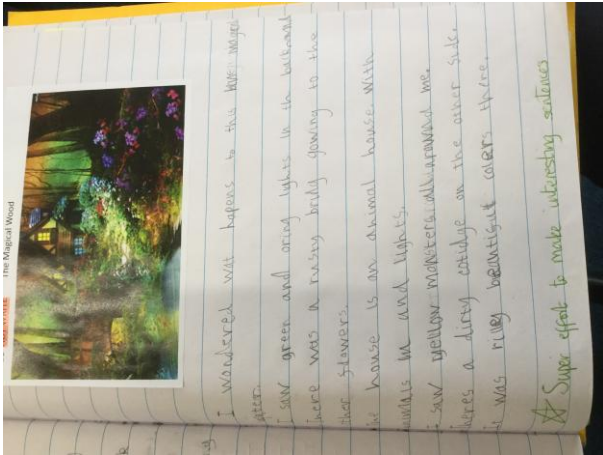 The Magical Wood
I wondered wat hapens to this
ater.
I saw green and oring lights in th backrand
here was a rusty bridg gowing to the
ther flowers.
he house is an ahimal house with
nimals in and lights.
I saw yellow monsters all arawnd me.
heres a dirty cotidge on the other side.
it was rily beautigul colers there.
☆ Super effort to make interesting sentences